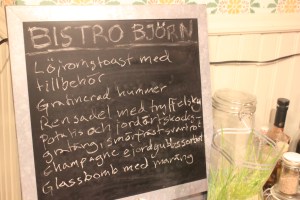 BISTRO BJÖRN
Löjromstoast med
tillbehör
Gratinerad hummer
Rensadel med tryffelsky
Potatis och jordärtskocks-
gratäng, smörfräst svartrot
Champagne ejordgubbssorbet
Glassbomb med maräng